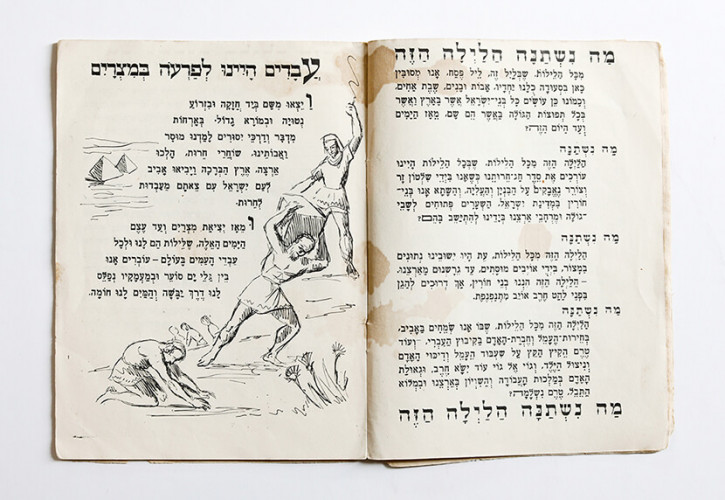 מַה נִּשְׁתַּנָּה הַלַּיְלָה הַזֶּה
מִכָּל הַלֵּילוֹת. שֶׁבְּלֵיל זֶה, לֵיל פֶּסַח, אָנוּ מְסוּבִּין
כָּאן בִּסְעוּדָה כֻּלָּנוּ יַחְדָּיו, אָבוֹת וּבָנִים, שֶׁבֶת אַחִים,
וְכָמוֹנוּ כֵּן עוֹשִׂים כָּל בְּנֵי־יִשְׂרָאֵל אֲשֶׁר בָּאָרֶץ וַאֲשֶׁר
בְּכָל תְּפוּצוֹת הַגּוֹלָה בַּאֲשֶׁר הֵם שָׁם, מֵאָז הַיָּמִים
וְעַד הַיּוֹם הַזֶּה?
מַה נִּשְׁתַּנָּה
הַלַּיְלָה הַזֶּה מִכָּל הַלֵּילוֹת. שֶׁבְּכָל הַלֵּילוֹת, הָיִינוּ
עוֹרְכִים אֶת סֵדֶר חַג־חֵרוּתֵנוּ כְּשֶׁאָנוּ בִּידֵי שִׁלְטוֹן זָר
וְצוֹרֵר נֶאֱבָקִים עַל הַבִּנְיָן וְהָעֲלִיָּה, וְהַשַּׁתָּא אָנוּ בְּנֵי־
חוֹרִין בִּמְדִינַת יִשְׂרָאֵל. הַשְּׁעָרִים פְּתוּחִים לְשָׁבֵי
־גוֹלָה וּמֶרְחֲבֵי אַרְצֵנוּ בְּיָדֵינוּ לְהִתְיַשֵּׁב בָּהֶם?
מַה נִּשְׁתַּנָּה
הַלַּיְלָה הַזֶּה מִכָּל הַלֵּילוֹת. עֵת הָיוּ יִשּׁוּבֵינוּ נְתוּנִים
בְּמָצוֹר, בִּידֵי אוֹיְבִים מוּסָתִים, עַד גֵּרַשְׁנוּם מֵאַרְצֵנוּ,
– הַלַּיְלָה הַזֶּה הִנֶּנּוּ בְּנֵי חוֹרִין, אַךְ דְּרוּכִים לְהָגֵן
בִּפְנֵי לַהַט חֶרֶב אוֹיֵב
מַה נִּשְׁתַּנָּה
הַלַּיְלָה הַזֶּה מִכָּל הַלֵּילוֹת. שֶׁבּוֹ אָנוּ שְׂמֵחִים בָּאָבִיב,
בְּחֵירוּת־הֶעָמֵל וְחֶבְרַת־הָאָדָם בַּקִּיבּוּץ הָעִבְרִי, – וְעוֹד
טֶרֶם הֵקִיץ הַקֵּץ עַל שִׁעְבּוּד הֶעָמֵל וְדִיכּוּי הָאָדָם
וְנִיצוּל הַיֶּלֶד, וְגוֹי אֶל גּוֹי עוֹד יִשָּׂא חֶרֶב, וּגְאוּלַּת
הָאָדָם בְּמַלְכוּת הָעֲבוֹדָה וְהַשִּׁוְיוֹן בְּאַרְצֵנוּ וּבִמְלוֹא
הַתֵּבֵל, טֶרֶם נִשְׁלָמָה?
מַה נִּשְׁתַּנָּה הַלַּיְלָה הַזֶּה
עֲבָדִים הָיִינוּ לְפַרְעֹה בְּמִצְרַיִם
וַיֵּצְאוּ מִשָּׁם בְּיָד חֲזָקָה וּבִזְרוֹעַ
נְטוּיָה וּבְמוֹרָא גָדוֹל. בְּאָרְחוֹת
מִדְבָּר וְדַרְכֵי יִסּוּרִים לָמַדְנוּ מוּסַר
וַאֲבוֹתֵינוּ, שׁוֹחֲרֵי חֵרוּת, הָלְכוּ
אַרְצָה, אֶרֶץ הַבְּרָכָה וַיָּבִיאוּ אָבִיב
לְעַם יִשְׂרָאֵל עִם צֵאתָם מֵעַבְדוּת
לְחֵרוּת.
וּמֵאָז יְצִיאַת מִצְרַיִם וְעַד עֶצֶם
הַיָּמִים הָאֵלֶּה, שֶׁלֵּילוֹת הֵם לָנוּ וּלְכָל
עַבְדֵי הָעַמִּים בָּעוֹלָם – עוֹבְרִים אָנוּ
בֵּין גַּלֵּי יָם סוֹעֵר וּבְמַעֲמַקָּיו נְפַלֵּס
לָנוּ דֶּרֶךְ יַבָּשָׁה וְהַמַּיִם לָנוּ חוֹמָה.